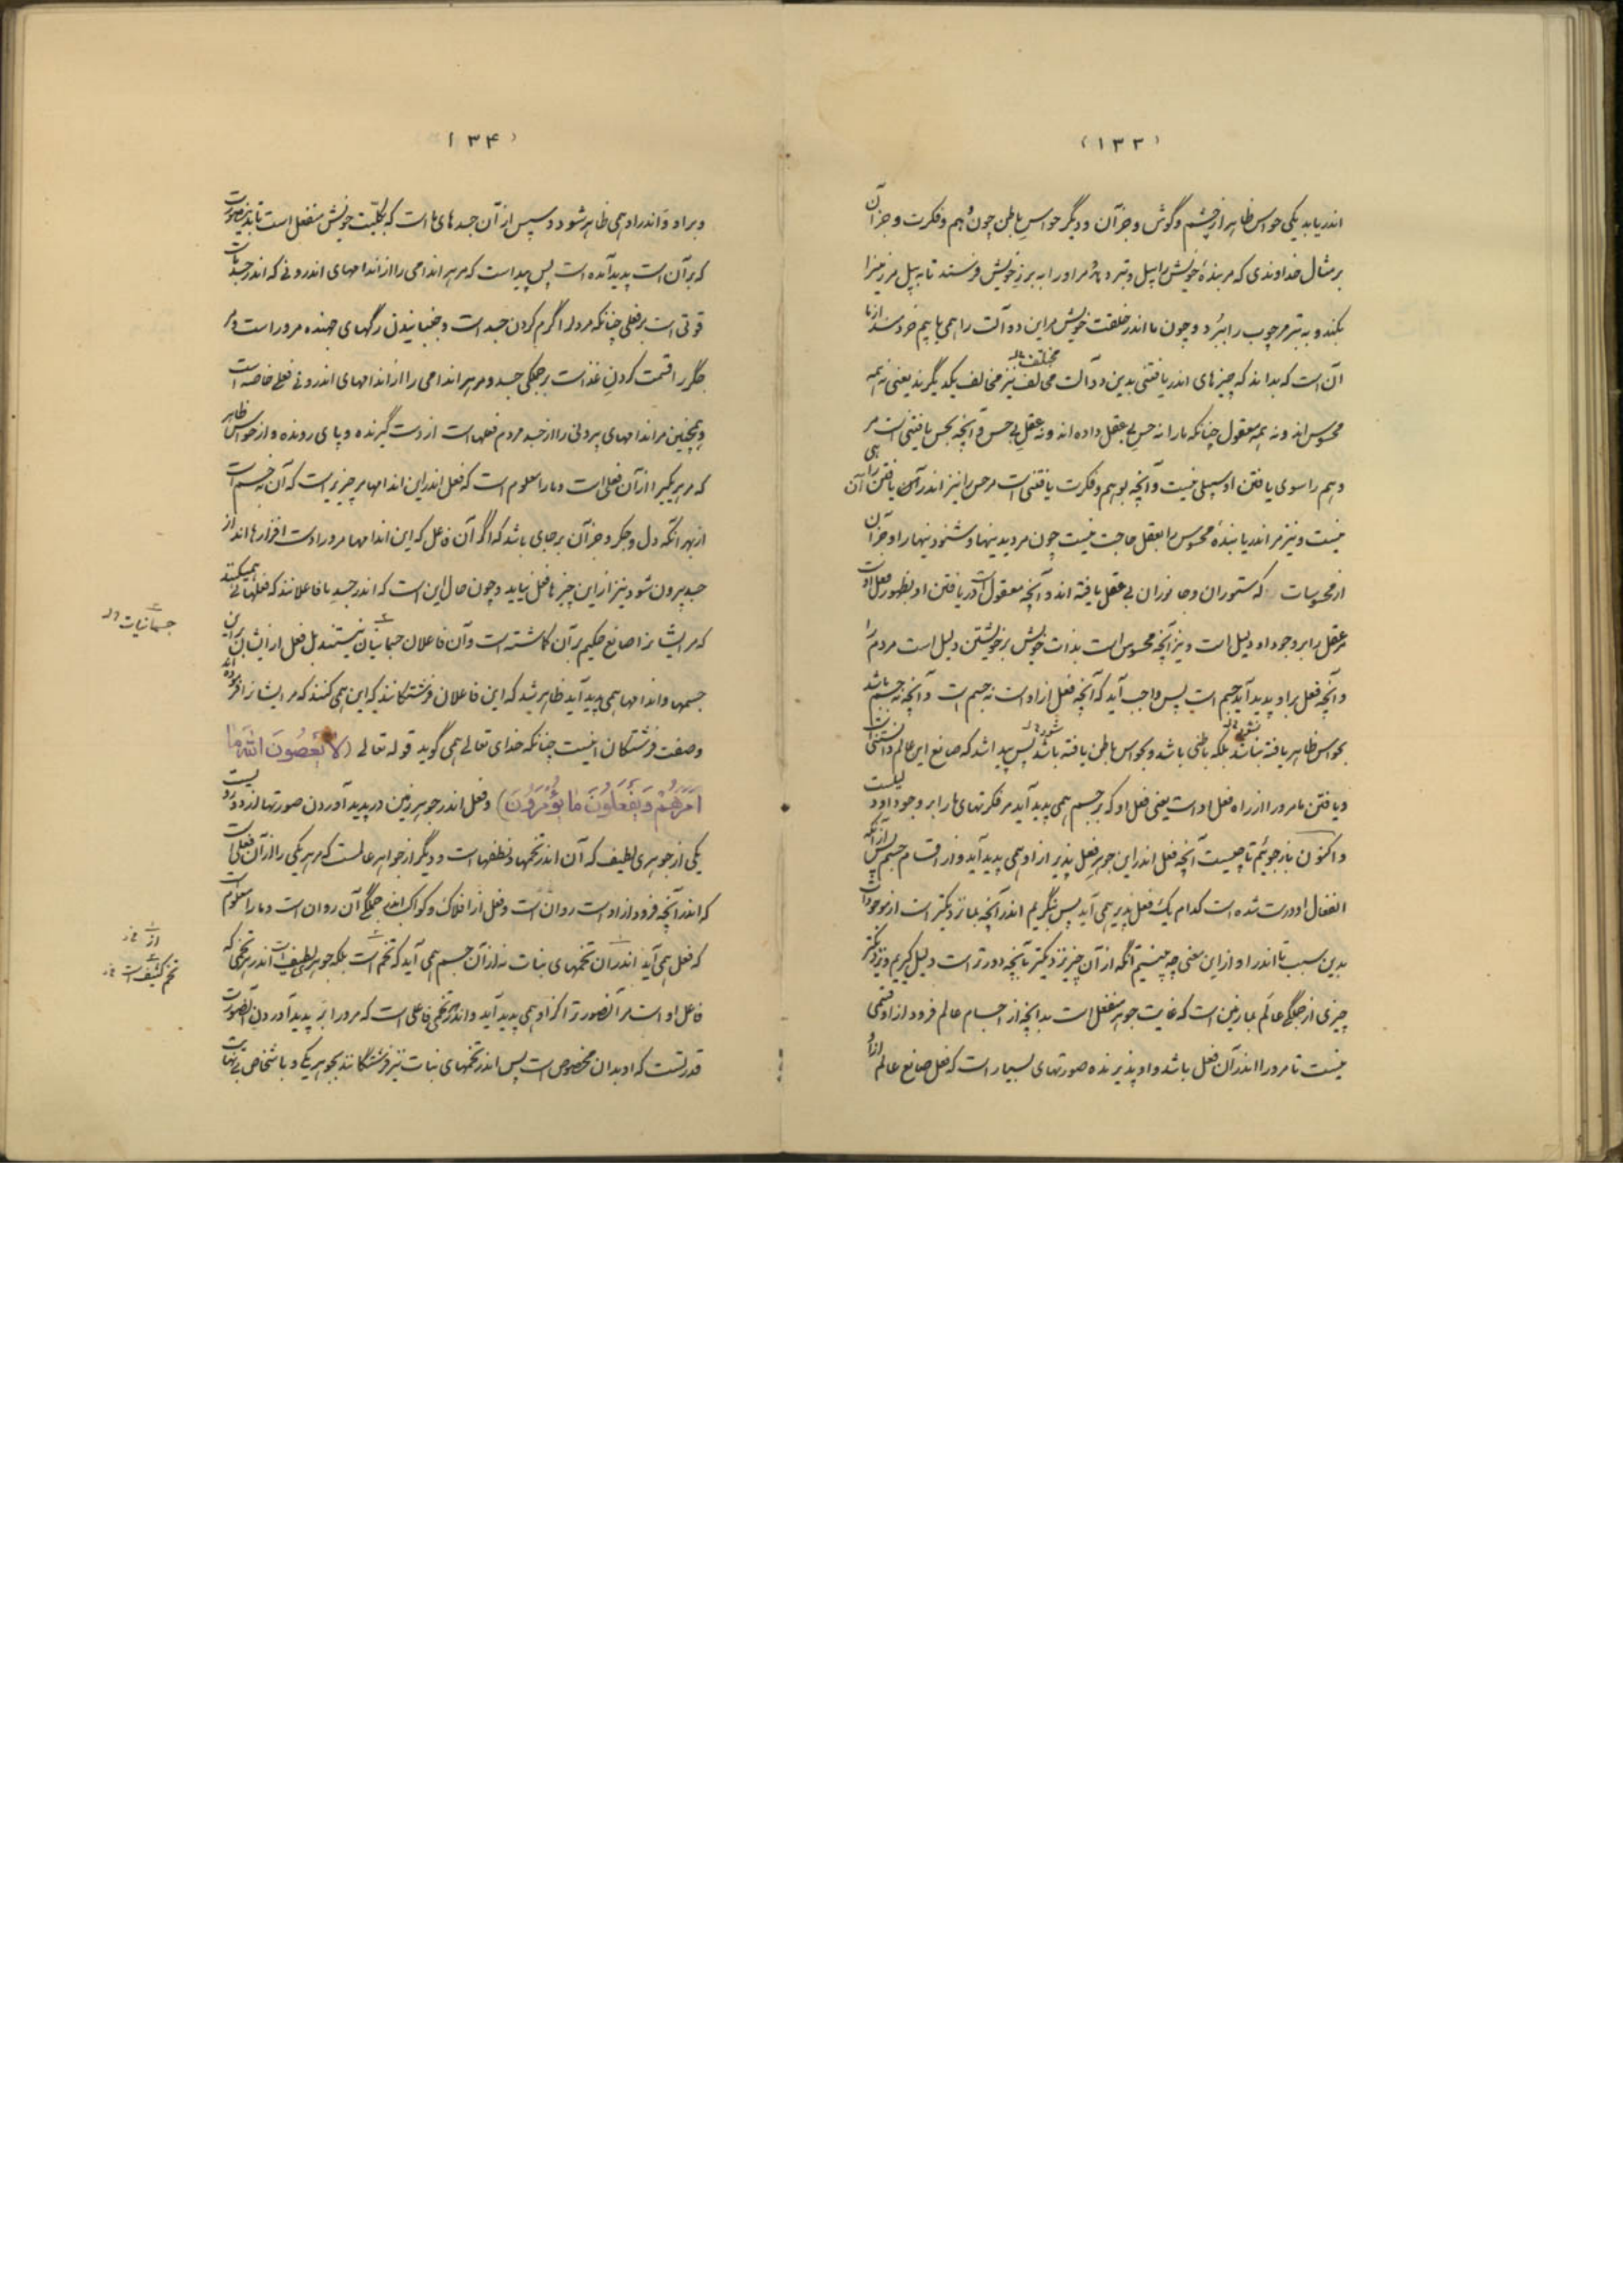 (۱۳۳)
اندر یابد یکی حواس ظاهر از چشم و گوش و جز آن و دیگر حواس باطن چون وهم و فکرت و جز آن
بر مثال خداوندی که مر بندهٔ خویش را بیل و تبر دهد و مر او را به برز خویش فرستد تا به بیل مر زمین را
بکند و به تبر مر چوب را ببرد و چون ما اندر خلقت خویش مر این دو آلت را همی یابیم خرد سند از ما
آن است که بداند که چیزهای اندر یافتنی بدین دو آلت مخالف نیز مخالف یکدیگرند یعنی نه همه
مختلف
محسوس اند و نه همه معقول چنانکه ما را نه حس بی عقل داده اند و نه عقل بی حس و آنچه بحس یافتنی است مر
وهم را سوی یافتن او سبیلی نیست و آنچه بوهم و فکرت یافتنی است مر حس را نیز اندر آن یافتن راهی
نیست و نیز مر اندر یابندهٔ محسوس را بعقل حاجت نیست چون مر دیدنیها و شنودنیها را و جز آن
از محسوسات که ستوران و جانوران بی عقل یافته اند و آنچه معقول است در یافتن او بظهور فعل اوست
مر عقل را بر وجود او دلیل است و نیز آنچه محسوس است بذات خویش بر خویشتن دلیل است مردم را
و آنچه فعل بر او پدید آید جسم است پس واجب آید که آنچه فعل از او است نه جسم است و آنچه نه جسم باشد
بحواس ظاهر یافته نباشد بلکه باطنی باشد و بحواس باطن یافته باشد پس پیدا شد که صانع این عالم دانستنی است
و یافتن ما مرورا از راه فعل او است یعنی فعل او که بر جسم همی پدید آید مر فکرتهای ما را بر وجود او دلیلست
و اکنون باز جوئیم تا چیست آنچه فعل اندر این جوهر فعل پذیر از او همی پدید آید و از اقسام جسم پس از آنکه
انفعال او درست شده است کدام یک فعل پذیر همی آید پس بنگریم اندر آنچه بما نزدیکتر است از موجودات
بدین سبب تا اندر او از این معنی چه بینیم آنگه از آن چیز نزدیکتر تا بآنچه دورتر است دلیل گیریم و نزدیکتر
چیزی از جملگی عالم بما زمین است که غایت جوهر منفعل است بدانچه از اجسام عالم فرود از او قسمی
نیست تا مرورا اندر آن فعل باشد و او پذیرنده صورتهای بسیار است که فعل صانع عالم از او
(۱۳۴)
و بر او و اندر او همی ظاهر شود و سپس از آن جسدهای ما است که بکلیت خویش منفعل است تا بدین صورت
که بر آن است پدید آمده است پس پیدا است که مر هر اندامی را از اندامهای اندرونی که اندر جسد ماست
قوتی است بر فعلی چنانکه مر دل را گرم کردن جسد است و جنبانیدن رگهای جهنده مرورا است و مر
جگر را قسمت کردن غذا است بر جملگی جسد و مر هر اندامی را از اندامهای اندرونی فعلی خاصه است
و همچنین مر اندامهای بیرونی را از جسد مردم فعلهاست از دست گیرنده و پای رونده و از حواس ظاهر
که مر هر یکی را از آن فعلی است و ما را معلوم است که فعل اندر این اندامها مر چیزیرا است که آن نه جسم است
از بهر آنکه دل و جگر و جز آن بر جای باشد که اگر آن فاعل که این اندامها مرورا دست افزارهااند از
جسد بیرون شود نیز از این چیزها فعل نیاید و چون حال این است که اندر جسد ما فاعلانند که فعلها همی کنند
که مر ایشانرا صانع حکیم بر آن گماشته است و آن فاعلان جسمانیان نیستند بل فعل از ایشان بر این
جسمها و اندامها همی پدید آید ظاهر شد که این فاعلان فرشتگانند که این همی کنند که مر ایشانرا فرموده اند
و صفت فرشتگان اینست چنانکه خدای تعالی همی گوید قوله تعالی (لا یَعْصُونَ اللهَ ما
اَمَرَهُمْ وَیَفْعَلُونَ ما یُؤْمَرُونَ) و فعل اندر جوهر زمین در پدید آوردن صورتها از دو رویست
یکی از جوهری لطیف که آن اندر تخمها و نطفهاست و دیگر از جواهر عالیست که مر هر یکی را از آن فعلی است
که اندر آنچه فرود از او است روان است و فعل از افلاک و کواکب اندر جملگی آن روان است و ما را معلوم است
که فعل همی آید اندر آن تخمهای نبات نه از آن جسم همی آید که تخم است بلکه جوهر لطیف است اندر هر تخمی که
فاعل او است مر آنصورت را کز او همی پدید آید و اندر هر تخمی فاعلی است که مرورا بر پدید آوردن آنصورت
قدرتست که او بدان مخصوص است پس اندر تخمهای نبات نیز فرشتگانند بجوهر یکی و باشخاص بی نهایت
جسمانیات
از
تخم کثیف است